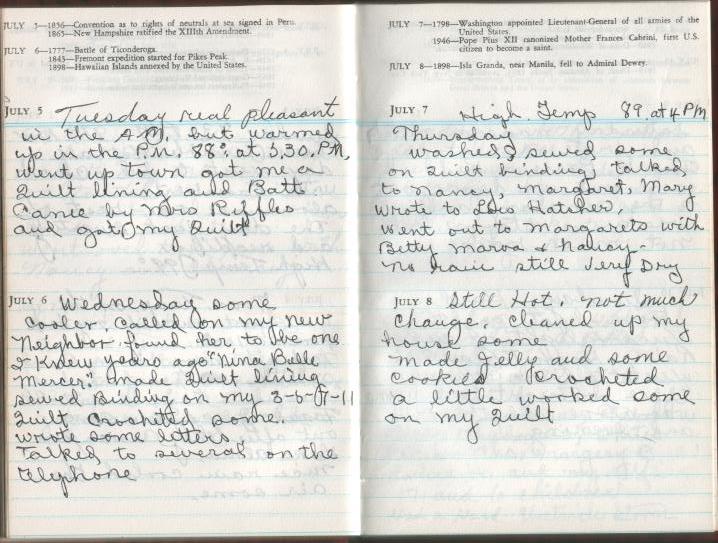 JULY 5—1856—Convention as to rights of neutrals at sea signed in Peru.
1865—New Hampshire ratified the XIIIth Amendment.
JULY 6—1777—Battle of Ticonderoga.
1845—Fremont expedition started for Pikes Peak.
1898—Hawaiian Islands annexed by the United States.
JULY 5 Tuesday real pleasant
in the A.M. but warmed
up in the P.M. 88° at 5,30 P.M,
went up town got me a
Quilt lining and Batt
Came by Mrs Riffles
and got my Quilt
JULY 6 Wednesday some
cooler, called on my new
Neighbor, found her to be one
I Knew years ago "Nina Belle
Mercer". made Quilt lining
sewed Binding on my 3-6-9-11
Quilt Crocheted some.
wrote some letters,
Talked to several on the
telephone
JULY 7—1798—Washington appointed Lieutenant-General of all armies of the
United States.
1946—Pope Pius XII canonized Mother Frances Cabrini, first U.S.
citizen to become a saint.
JULY 8—1898—Isla Granda, near Manila, fell to Admiral Dewey.
JULY 7 High Temp 89. at 4 PM
Thursday
washed & sewed some
on Quilt binding, talked
to Nancy, Margaret, Mary
wrote to Lois Hatcher,
Went out to Margarets with
Betty Marva & Nancy-
no rain still Very Dry
JULY 8 Still Hot, not much
change, cleaned up my
house some
made Jelly and some
cookies Crocheted
a little worked some
on my Quilt